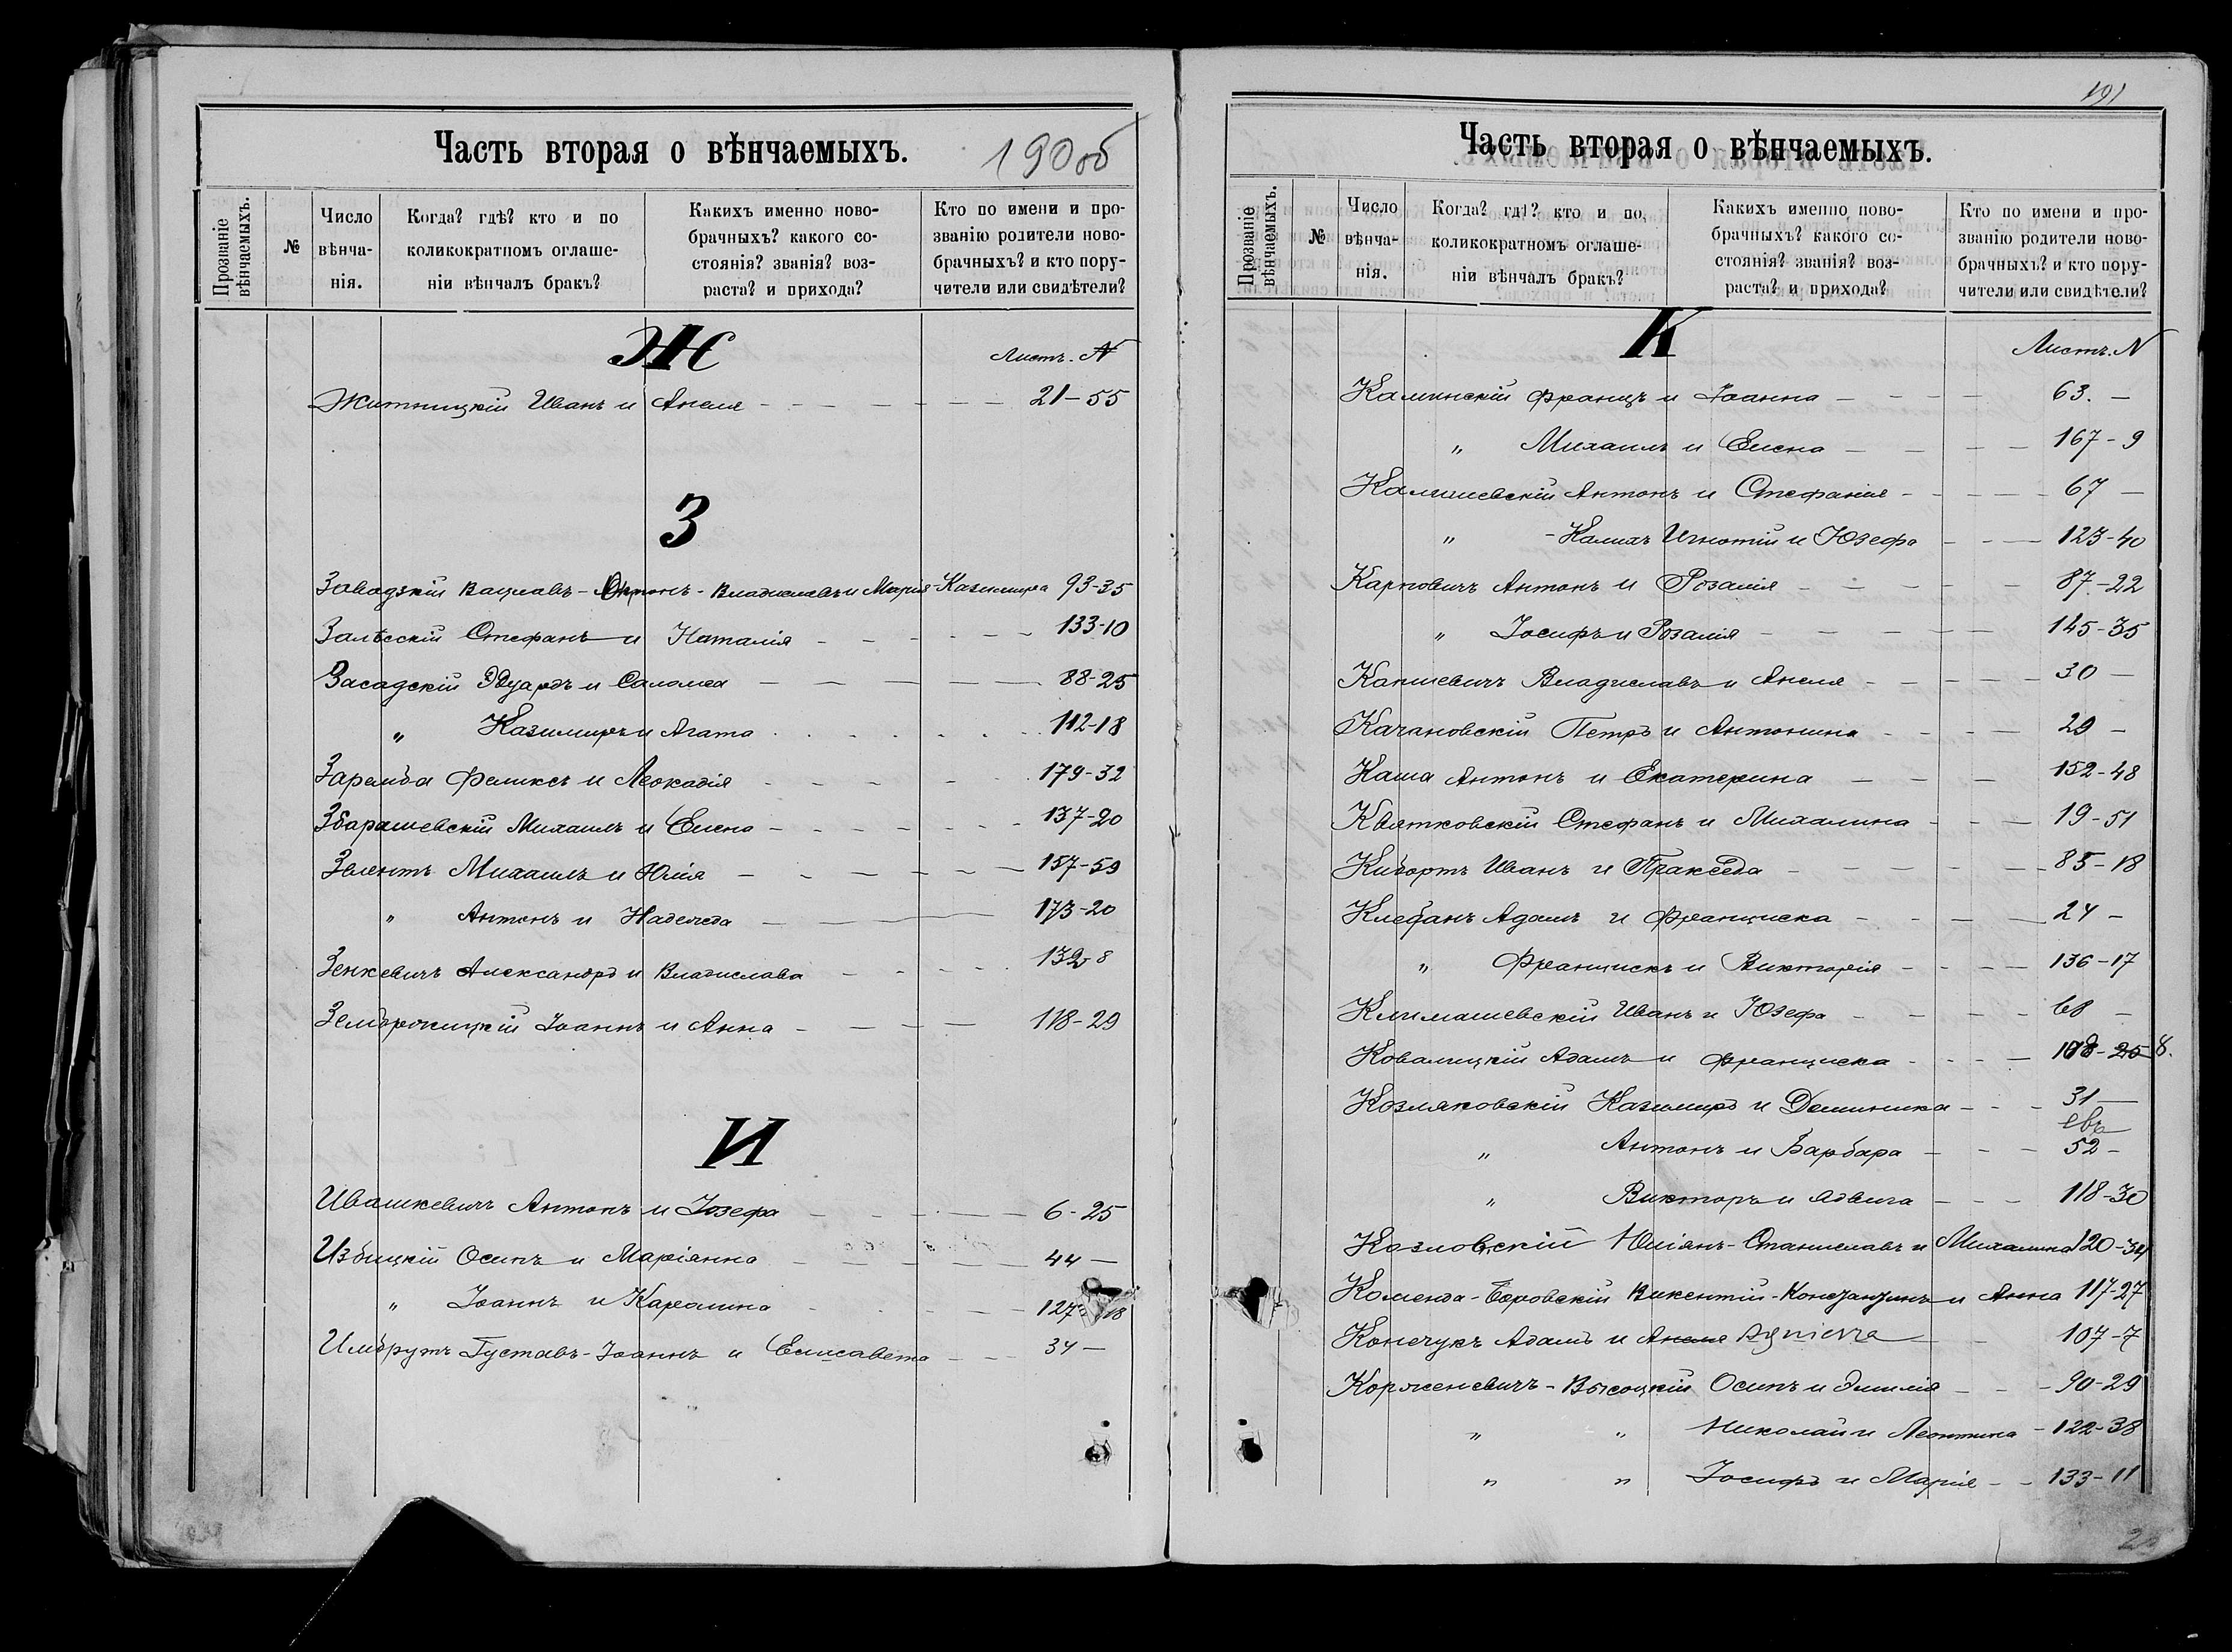 190 об
Часть вторая о вѣнчаемыхъ.
Прозваніе вѣнчаемыхъ.
№
Число вѣнча-нія.
Когда? гдѣ? кто и по коликократномъ оглаше-ніи вѣнчалъ бракъ?
Какихъ именно ново-брачныхъ? какого со-стоянія? званія? воз-раста? и прихода?
Кто по имени и про-званію родители ново-брачныхъ? и кто пору-чители или свидѣтели?
Ж
Листъ. N
Житницкій Иванъ и Анеля - - - 21-55
З
Завадзкій Вацлавъ-Антонъ-Владиславъ и Марія-Казимира 93-35
Залѣсскій Стефанъ и Наталія - - - 133-10
Засадскій Эдуардъ и Саломея - - - 88-25
" Казимиръ и Агата - - - 112-18
Заремба Феликсъ и Леокадія - - - 179-32
Збарашевскій Михаилъ и Елена - - - 137-20
Зелентъ Михаилъ и Юлія - - - 157-59
" Антонъ и Надежда - - - 173-20
Зенкевичъ Александръ и Владислава - - - 132-8
Земброжицкій Іоаннъ и Анна - - - 118-29
И
Ивашкевичъ Антонъ и Іозефа - - - 6-25
Избицкій Осипъ и Маріянна - - - 44 -
" Іоаннъ и Каролина - - - 127-18
Имбрутъ Густавъ-Іоаннъ и Елисавета - - 34 -
191
Часть вторая о вѣнчаемыхъ.
Прозваніе вѣнчаемыхъ.
№
Число вѣнча-нія.
Когда? гдѣ? кто и по коликократномъ оглаше-ніи вѣнчалъ бракъ?
Какихъ именно ново-брачныхъ? какого со-стоянія? званія? воз-раста? и прихода?
Кто по имени и про-званію родители ново-брачныхъ? и кто пору-чители или свидѣтели?
К
Листъ. N
Каминскій Францъ и Іоанна - - - 63. -
" Михаилъ и Елена - - - 167-9
Калишевскій Антонъ и Стефанія - - - 67 -
" -Калихъ Игнатій и Юзефа - - - 123-40
Карповичъ Антонъ и Розалія - - - 87-22
" Іосифъ и Розалія - - - 145-35
Капшевичъ Владиславъ и Анеля - - - 30 -
Качановскій Петръ и Антонина - - - 29 -
Каша Антонъ и Екатерина - - - 152-48
Квятковскій Стефанъ и Михалина - - - 19-51
Кибортъ Иванъ и Пракседа - - - 85-18
Клебанъ Адамъ и Франциска - - - 24 -
" Францискъ и Викторія - - - 136-17
Климашевскій Иванъ и Юзефа - - - 68 -
Ковалицкій Адамъ и Франциска - - - 108-25 8.
Козляковскій Казимиръ и Доминика - - - 31 -
" Антонъ и Барбара - - - 52 -
" Викторъ и Ядвига - - - 118-30
Козловскій Юліянъ-Станиславъ и Михалина 120-34
Коменда-Боровскій Викентій-Константинъ и Анна 117-27
Кончукъ Адамъ и Анеля Agnieszka - 107-7
Корженевичъ-Высоцкій Осипъ и Эмилія - - - 90-29
" " Николай и Леонтина - 122-38
" " Іосифъ и Марія - - 133-11